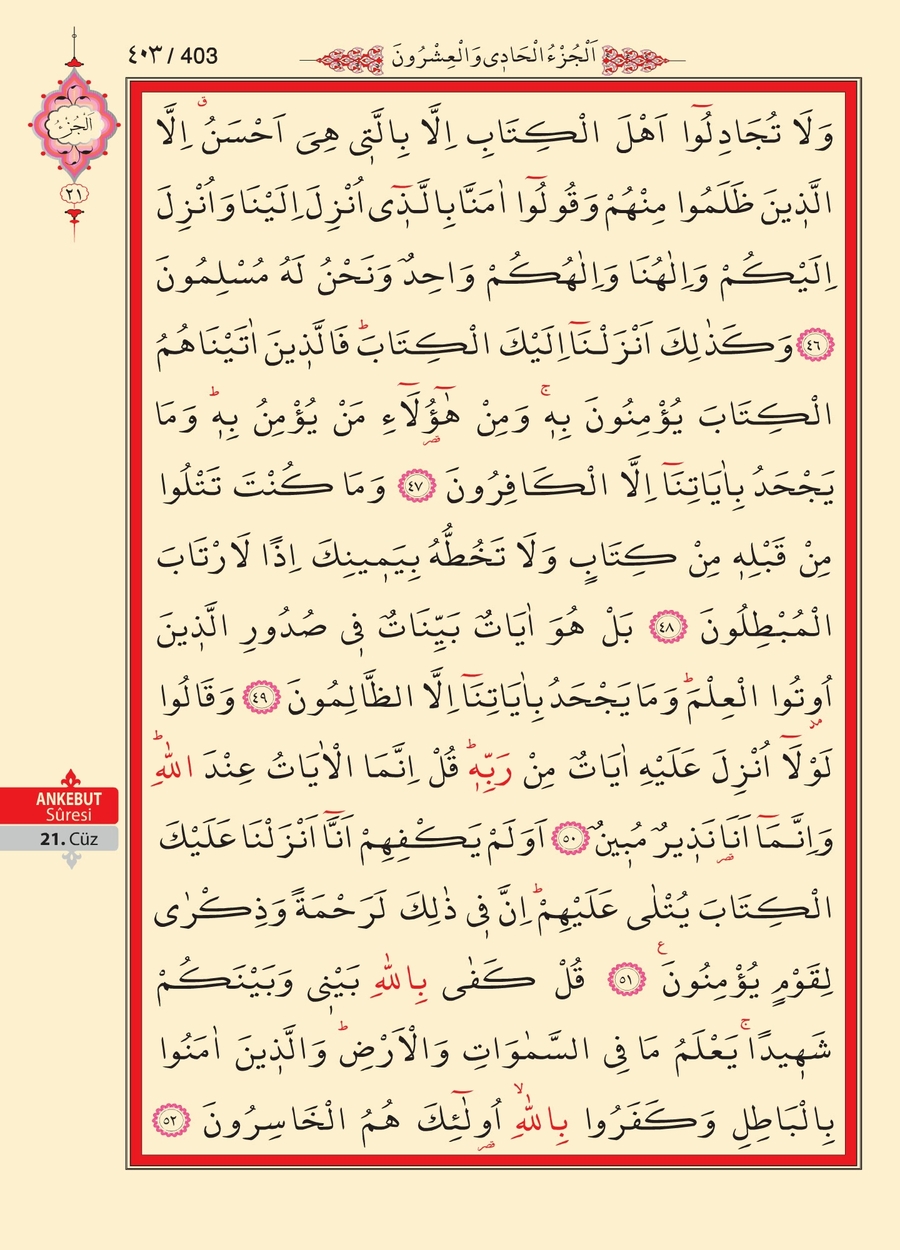 ٤٠٣ / 403
اَلْجُزْءُ الْحَادِى وَالْعِشْرُونَ
اَلْجُزْءُ
٢١
وَلَا تُجَادِلُٓوا اَهْلَ الْكِتَابِ اِلَّا بِالَّتٖى هِىَ اَحْسَنُࣗ اِلَّا
الَّذٖينَ ظَلَمُوا مِنْهُمْ وَقُولُٓوا اٰمَنَّا بِالَّذٖٓى اُنْزِلَ اِلَيْنَا وَاُنْزِلَ
اِلَيْكُمْ وَاِلٰهُنَا وَاِلٰهُكُمْ وَاحِدٌ وَنَحْنُ لَهُ مُسْلِمُونَ
﴿٤٦﴾ وَكَذٰلِكَ اَنْزَلْنَٓا اِلَيْكَ الْكِتَابَؕ فَالَّذٖينَ اٰتَيْنَاهُمُ
الْكِتَابَ يُؤْمِنُونَ بِهٖۚ وَمِنْ هٰٓؤُ۬لَٓاءِ مَنْ يُؤْمِنُ بِهٖؕ وَمَا
يَجْحَدُ بِاٰيَاتِنَٓا اِلَّا الْكَافِرُونَ ﴿٤٧﴾ وَمَا كُنْتَ تَتْلُوا
مِنْ قَبْلِهٖ مِنْ كِتَابٍ وَلَا تَخُطُّهُ بِيَمٖينِكَ اِذًا لَارْتَابَ
الْمُبْطِلُونَ ﴿٤٨﴾ بَلْ هُوَ اٰيَاتٌ بَيِّنَاتٌ فٖى صُدُورِ الَّذٖينَ
اُوتُوا الْعِلْمَؕ وَمَا يَجْحَدُ بِاٰيَاتِنَٓا اِلَّا الظَّالِمُونَ ﴿٤٩﴾ وَقَالُوا
لَوْلَٓا اُنْزِلَ عَلَيْهِ اٰيَاتٌ مِنْ رَبِّهٖؕ قُلْ اِنَّمَا الْاٰيَاتُ عِنْدَ اللّٰهِؕ
وَاِنَّمَٓا اَنَا۬ نَذٖيرٌ مُبٖينٌ ﴿٥٠﴾ اَوَلَمْ يَكْفِهِمْ اَنَّٓا اَنْزَلْنَا عَلَيْكَ
الْكِتَابَ يُتْلٰى عَلَيْهِمْؕ اِنَّ فٖى ذٰلِكَ لَرَحْمَةً وَذِكْرٰى
لِقَوْمٍ يُؤْمِنُونَ ع ﴿٥١﴾ قُلْ كَفٰى بِاللّٰهِ بَيْنٖى وَبَيْنَكُمْ
شَهٖيدًاۚ يَعْلَمُ مَا فِى السَّمٰوَاتِ وَالْاَرْضِؕ وَالَّذٖينَ اٰمَنُوا
بِالْبَاطِلِ وَكَفَرُوا بِاللّٰهِۙ اُو۬لٰٓئِكَ هُمُ الْخَاسِرُونَ ﴿٥٢﴾
ANKEBUT
Sûresi
21. Cüz